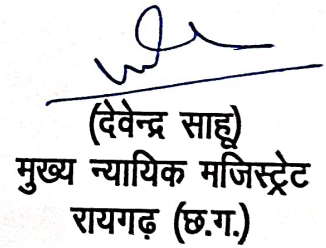 (देवेन्द्र साहू)
मुख्य न्यायिक मजिस्ट्रेट
रायगढ़ (छ.ग.)